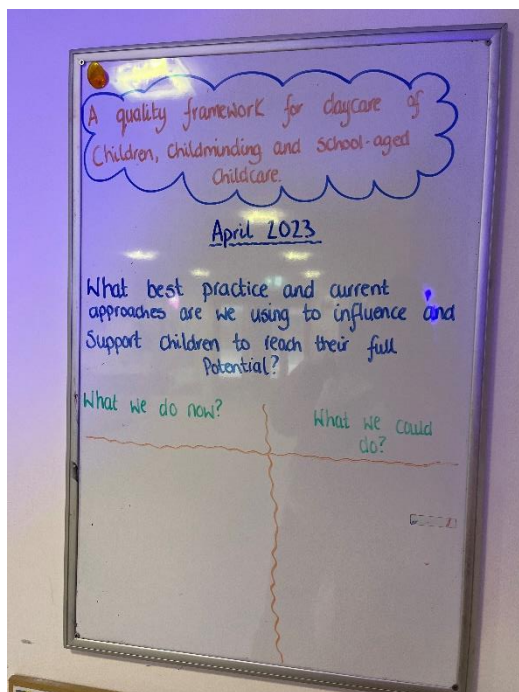 A quality framework for daycare of
Children, Childminding and school-aged
Childcare.
April 2023
What best practice and current
approaches are we using to influence and
Support children to reach their full
Potential?
What we do now?
What we could
do?